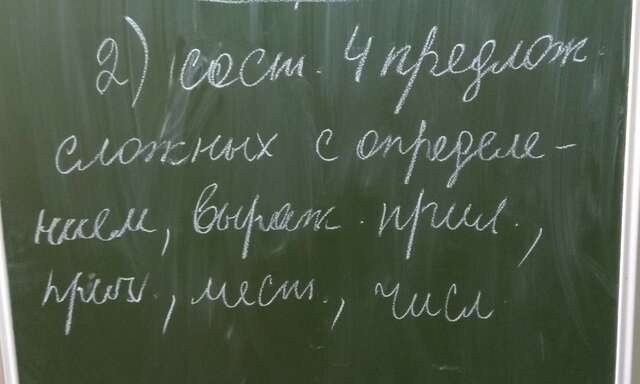 2) сост. 4 предлож.
сложных с определе-
нием, выраж. прил.,
прич., мест., числ.